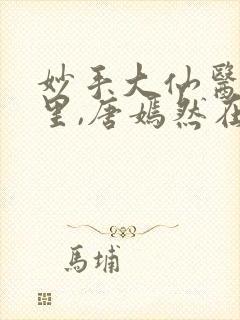 妙手大仙醫
里,唐嫣然在
馬埔